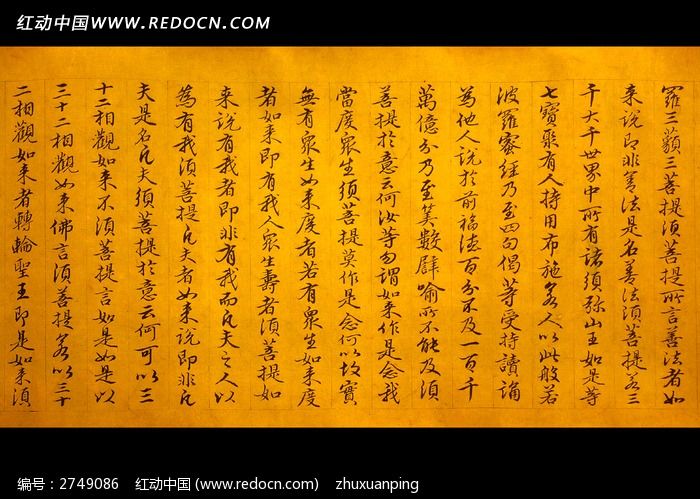 红动中国 WWW.REDOCN.COM
羅三藐三菩提須菩提所言善法者如
来說即非善法是名善法須菩提若三
千大千世界中所有諸須弥山王如是等
七寶聚有人持用布施若人以此般若
波羅蜜經乃至四句偈等受持讀誦
為他人說於前福德百分不及一百千
萬億分乃至筭數譬喻所不能及須
菩提於意云何汝等勿謂如来作是念我
當度衆生須菩提莫作是念何以故實
無有衆生如来度者若有衆生如来度
者如来即有我人衆生壽者須菩提如
来說有我者即非有我而凡夫之人以
為有我須菩提凡夫者如来說即非凡
夫是名凡夫須菩提於意云何可以三
十二相觀如来不須菩提言如是如是以
三十二相觀如来佛言須菩提若以三十
二相觀如来者轉輪聖王即是如来須
编号：2749086 红动中国 (www.redocn.com) zhuxuanping